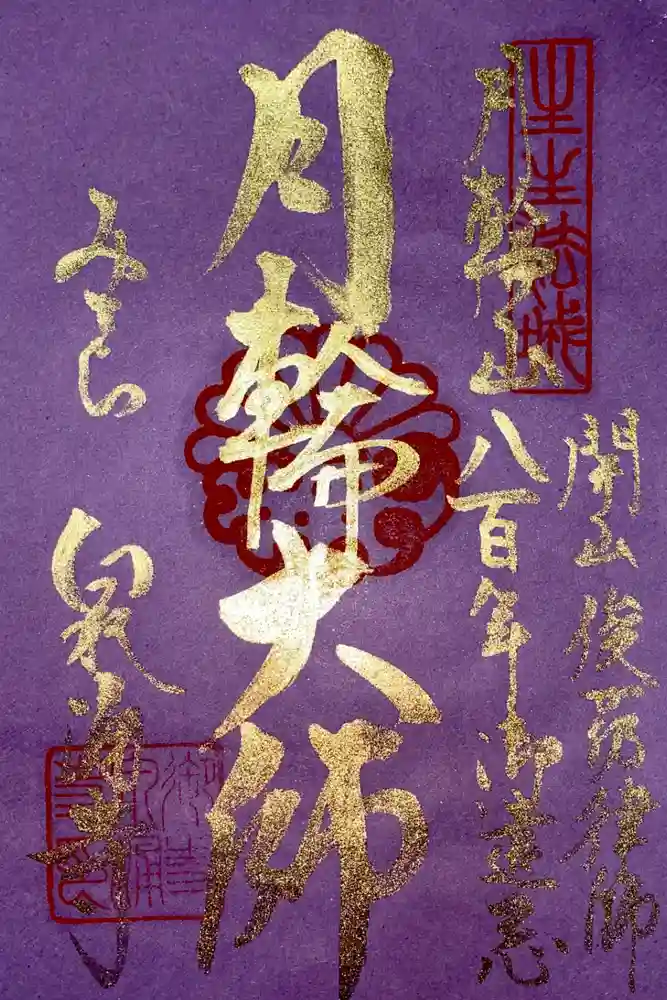 開山 俊芿律師
月輪山 八百年御遠忌
月輪大師
みてら
泉涌寺